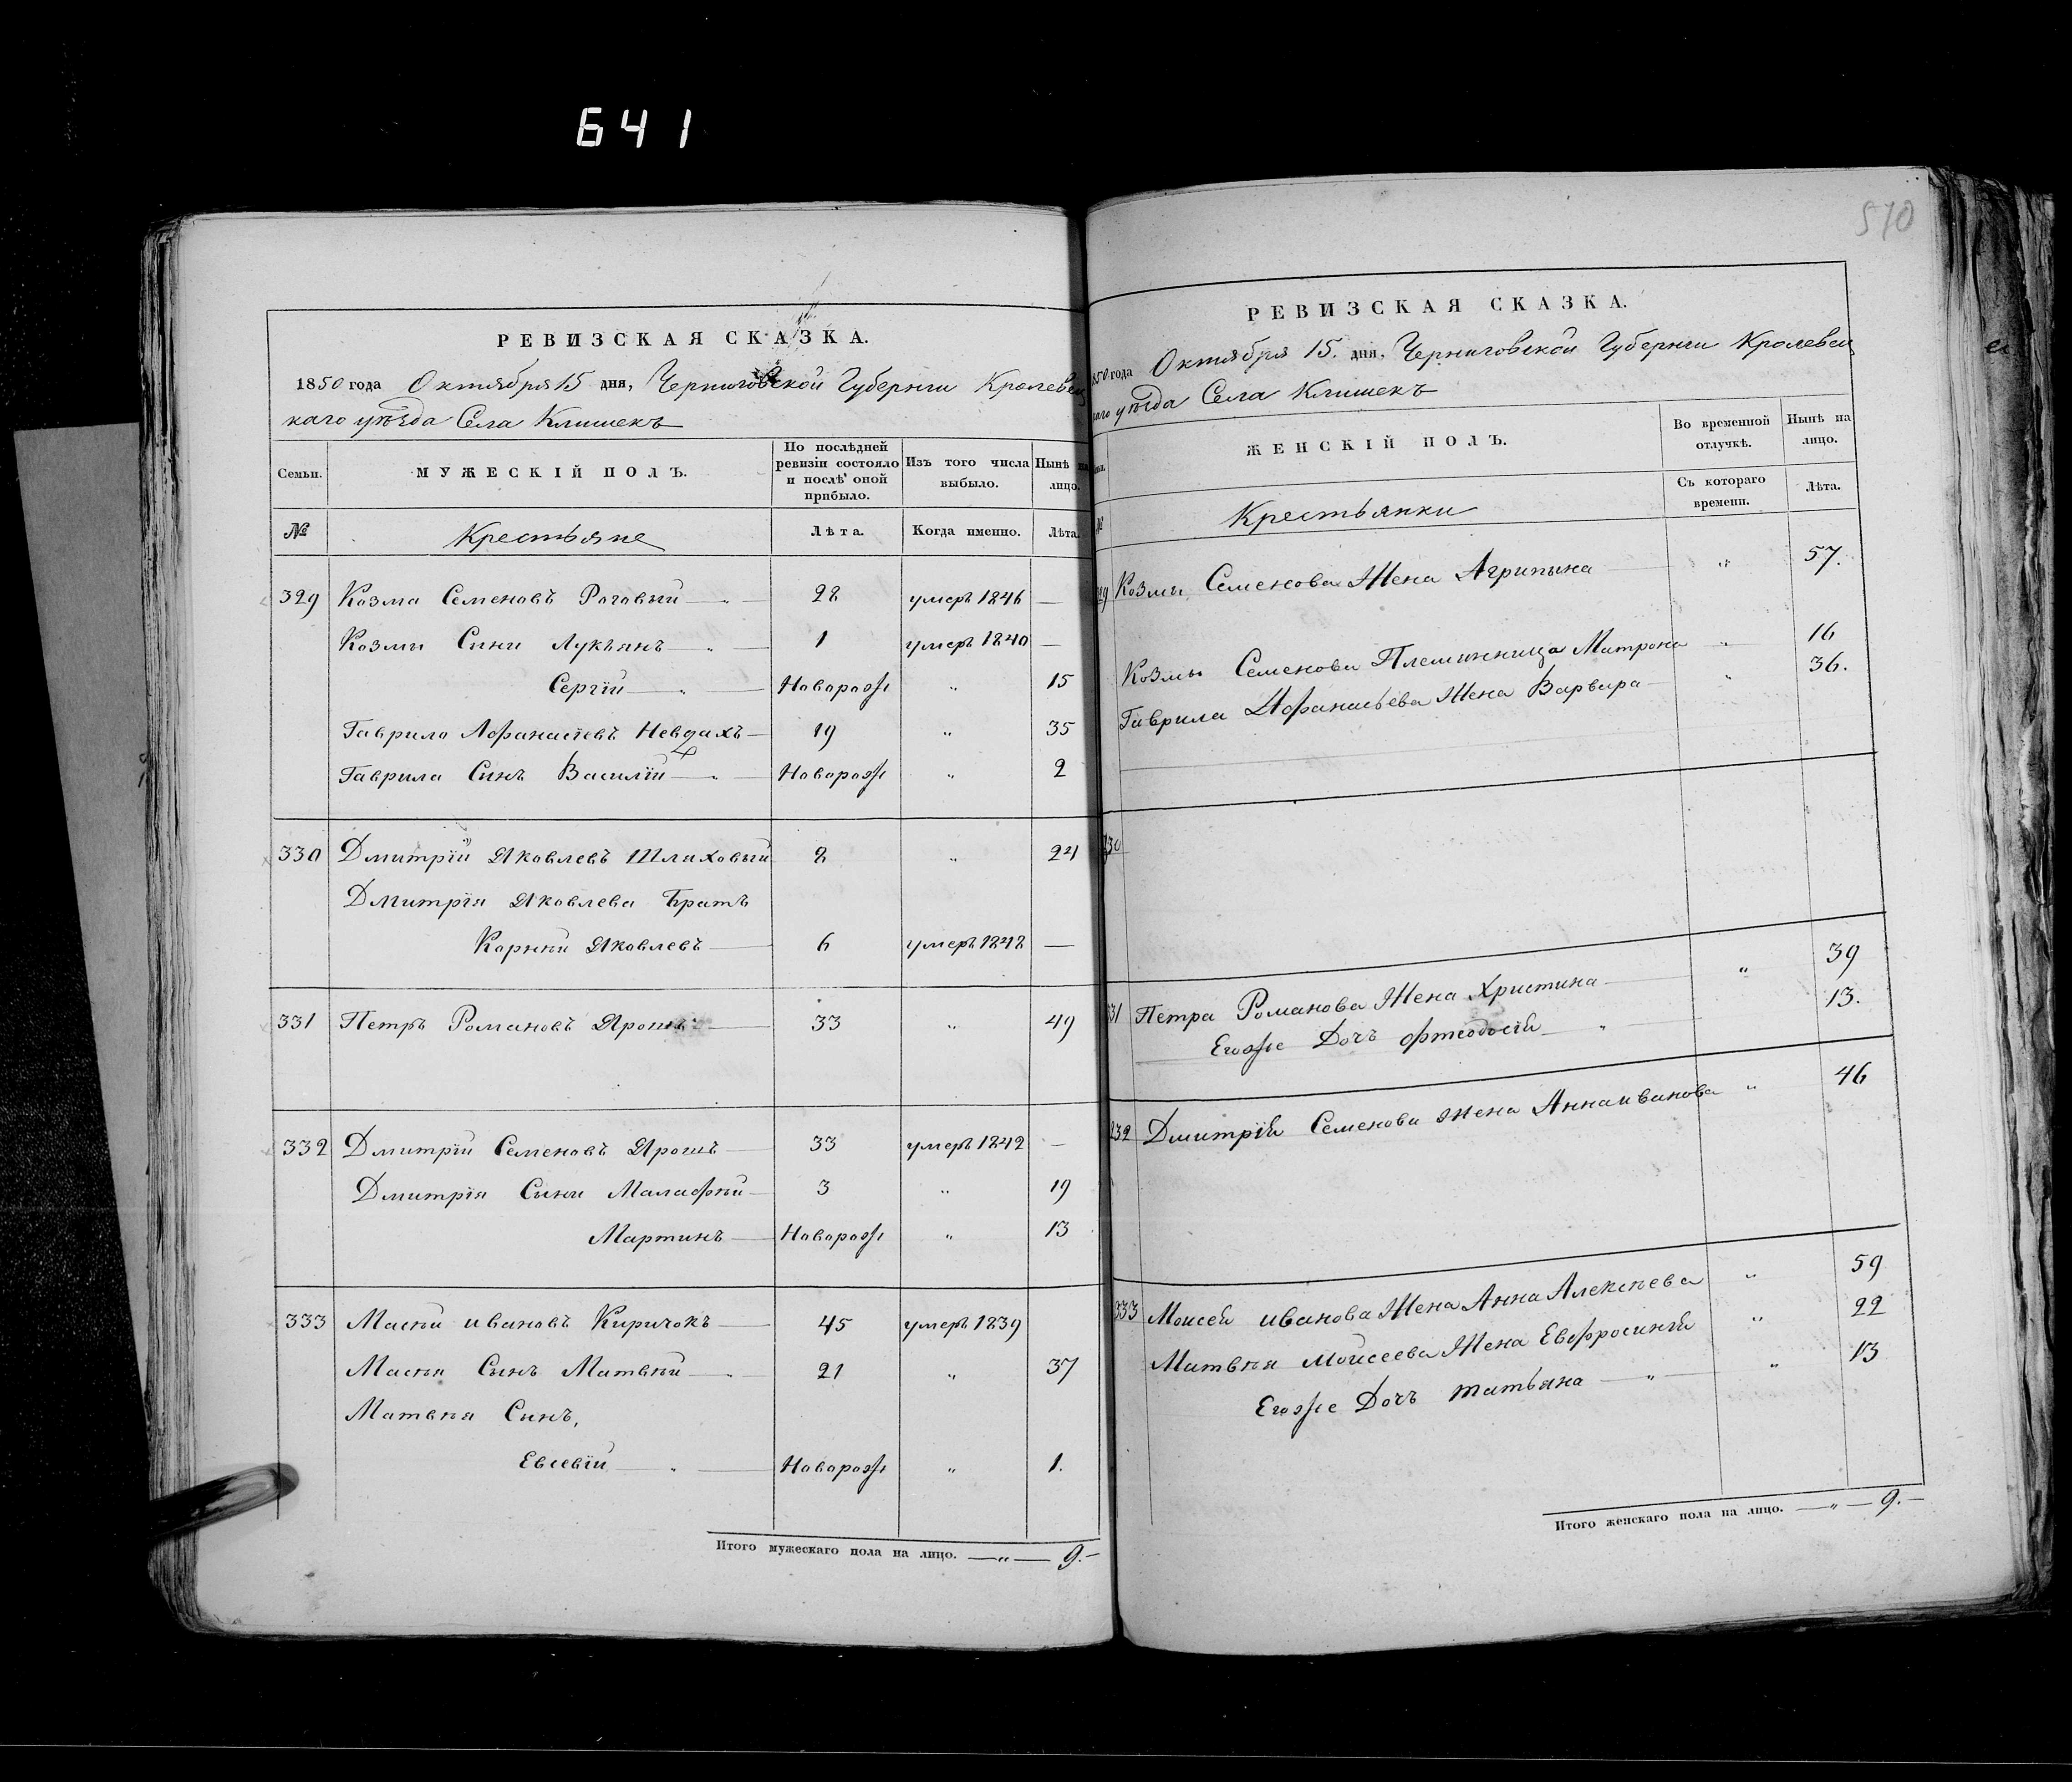 641
510
РЕВИЗСКАЯ СКАЗКА.
1850 года Октября 15 дня, Черниговской Губернiи Кролевец
каго уѣзда Села Клишекъ
Семьи. МУЖЕСКIЙ ПОЛЪ. По послѣдней ревизiи состояло и послѣ оной прибыло. Изъ того числа выбыло. Нынѣ на лицо.
№ Крестьяне Лѣта. Когда именно. Лѣта.
329 Козма Семеновъ Роговый — " — 28 умеръ 1846 —
Козмы Сини Лукъянъ — " — 1 умеръ 1840 —
Сергiй — " — Новорож " 15
Гаврило Афанасiевъ Невдахъ — 19 " 35
Гаврила Синъ Василiй — " — Новорож " 2
330 Дмитрiй Яковлевъ Шляховый 8 " 24
Дмитрiя Яковлева Братъ
Корнѣй Яковлевъ — 6 умеръ 1848 —
331 Петръ Романовъ Ярошъ — 33 " 49
332 Дмитрiй Семеновъ Ярошъ — 33 умеръ 1842 —
Дмитрiя Сыни Малафѣй — 3 " 19
Мартинъ — Новорож " 13
333 Масѣй ивановъ Киричокъ — 45 умеръ 1839
Масѣя Сынъ Матвѣй — " — 21 " 37
Матвѣя Синъ,
Евсевiй — " — Новорож " 1.
Итого мужескаго пола на лицо. — " — 9. —
РЕВИЗСКАЯ СКАЗКА.
1850 года Октября 15. дня, Черниговской Губернiи Кролевец
каго уѣзда Села Клишекъ
ЖЕНСКIЙ ПОЛЪ. Во временной отлучкѣ. Нынѣ на лицо.
№ Крестьянки Съ котораго времени. Лѣта.
329 Козмы Семенова Жена Агрипына — " 57.
Козмы Семенова Племинница Матрона " 16
Гаврила Афанасьева Жена Варвара — " 36.
330
331 Петра Романова Жена Христина — " 39
Егоже Дочъ Фтеодосiй — " 13.
332 Дмитрiй Семенова жена Анна иванова " 46
333 Моисей иванова Жена Анна Алексѣева " 59
Матвѣя Моисеева Жена Евфросинiй " 22
Егоже Дочъ татьяна — " — " 13
Итого женскаго пола на лицо. — " — 9. —